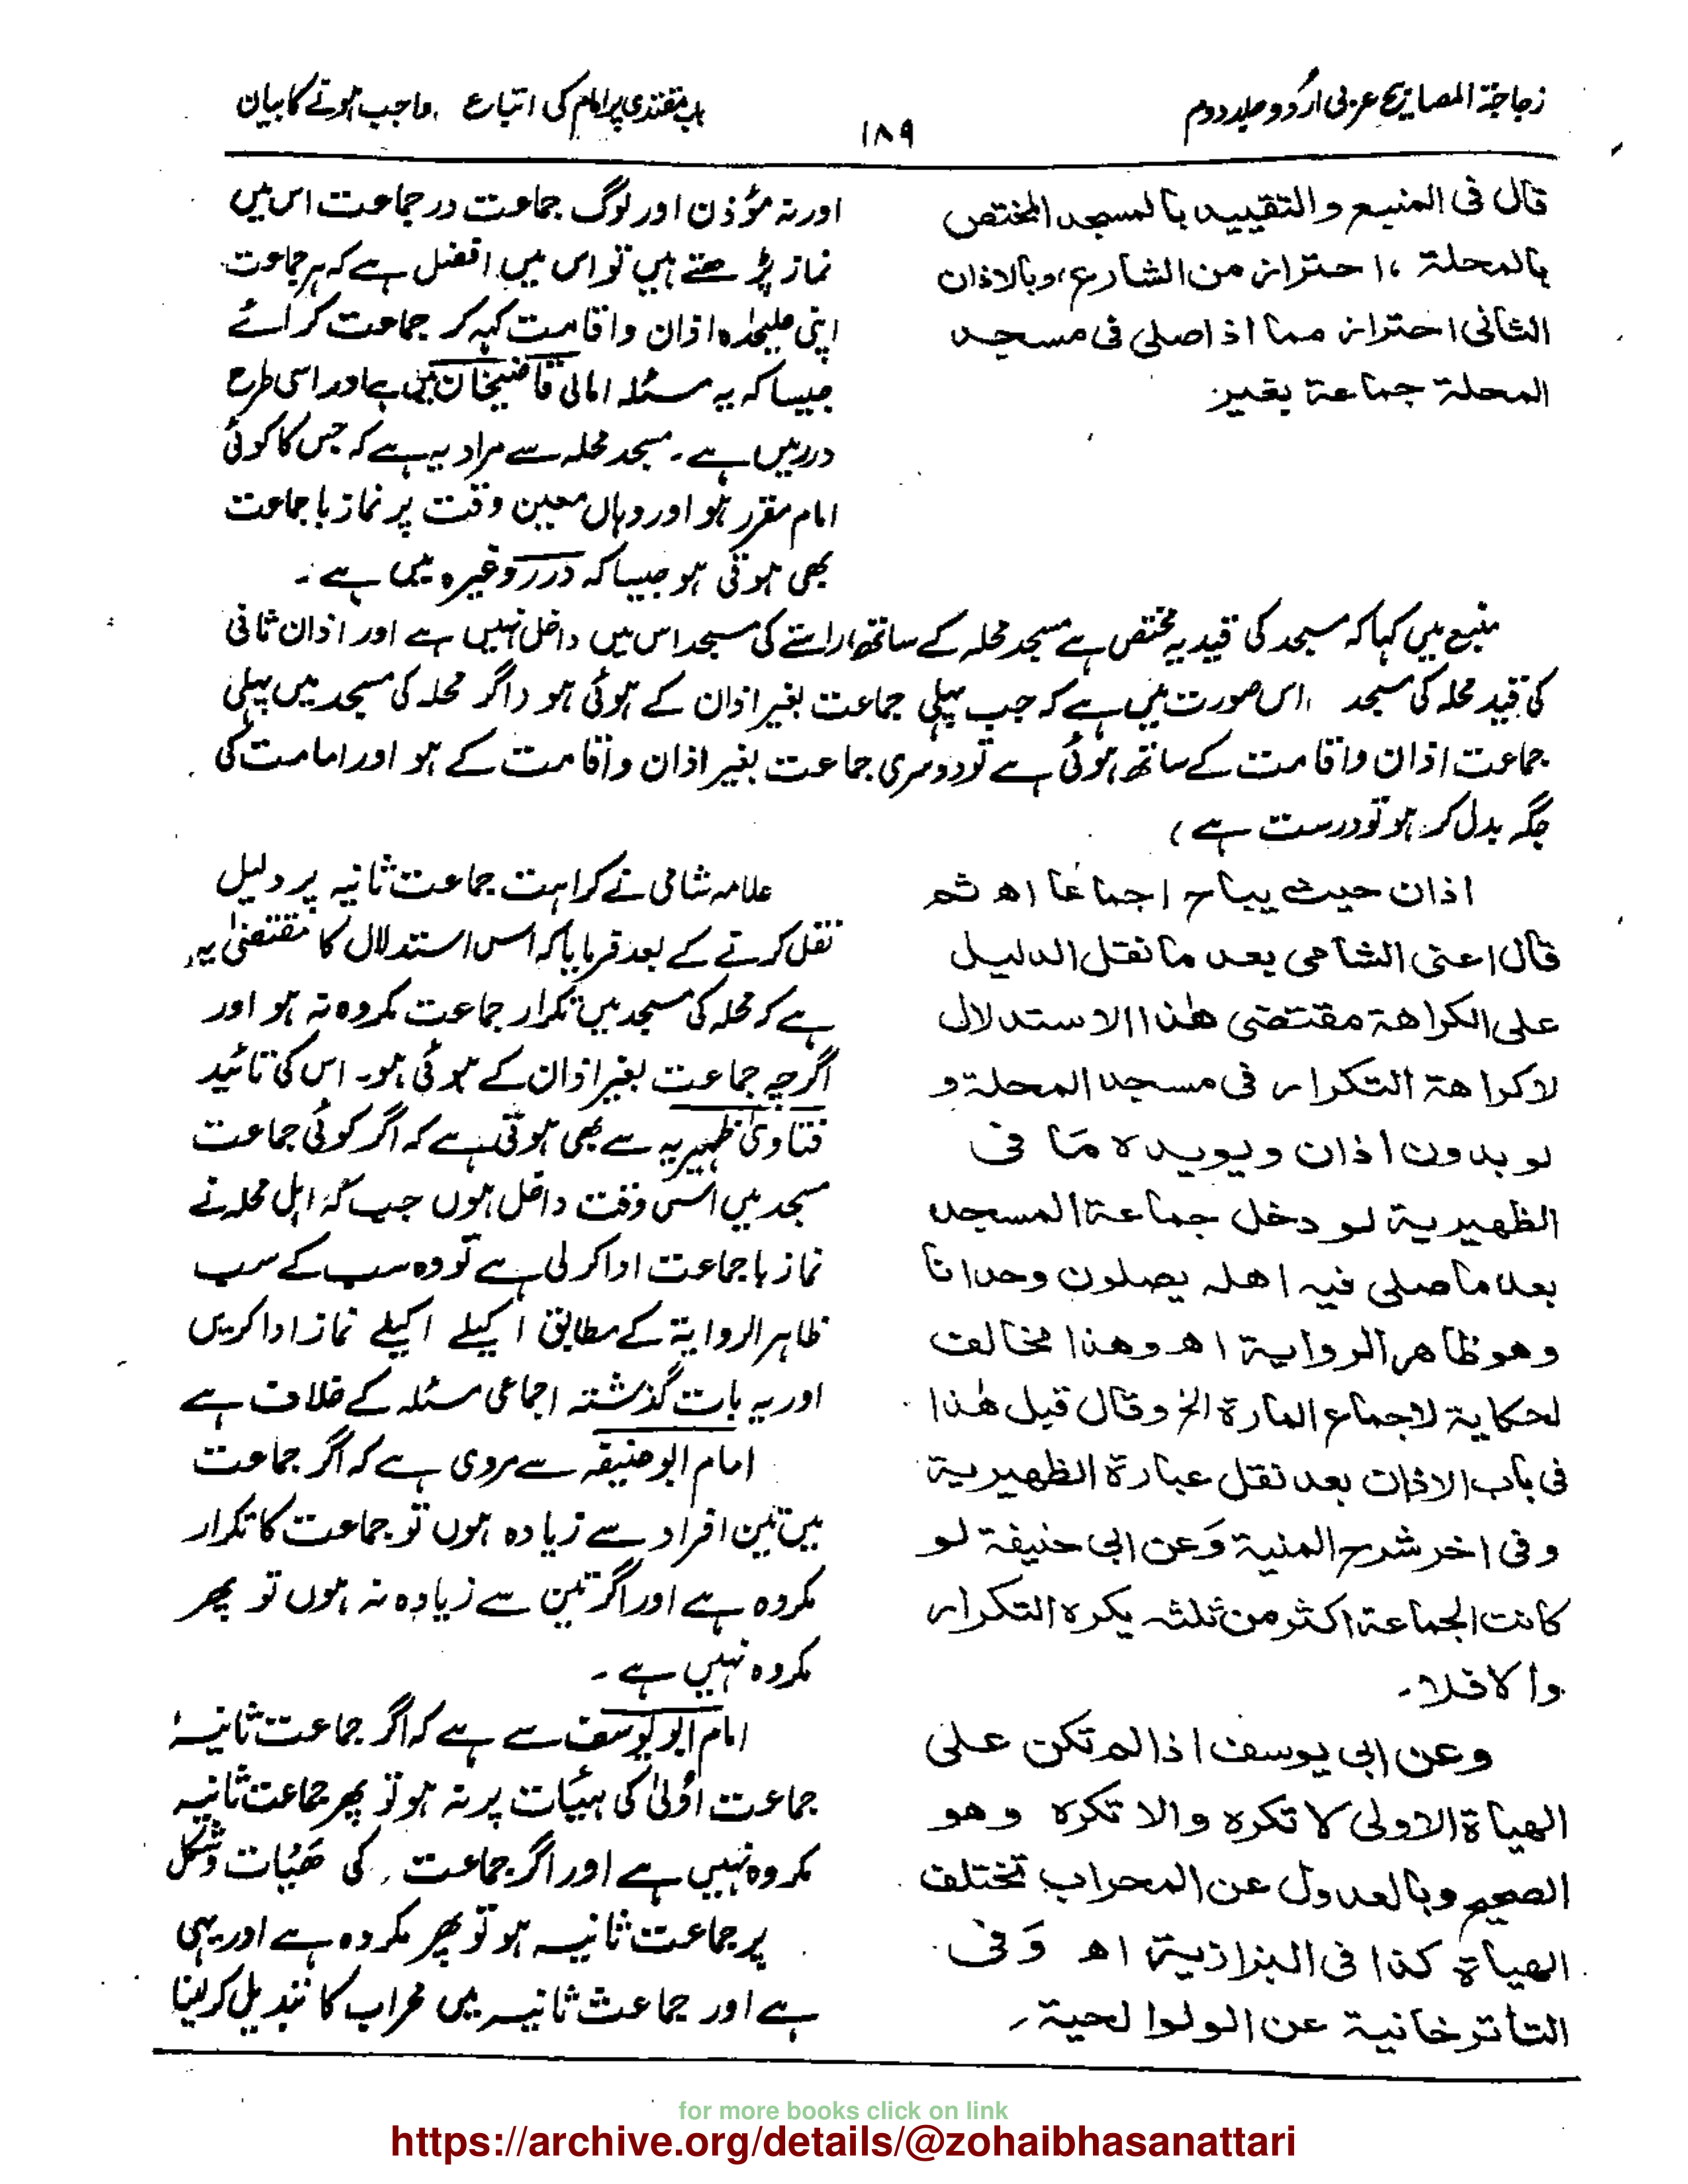 زجاجۃ المصابیح عربی اردو جلد دوم
۱۸۹
باب مقتدی پر امام کی اتباع واجب ہونے کا بیان
قال فی المنبع والتقیید بالمسجد المختص
بالمحلۃ، احتراز من الشارع، وبالاذان
الثانی احتراز مما اذا صلی فی مسجد
المحلۃ جماعۃ بغیر
اور نہ مؤذن اور لوگ جماعت در جماعت اس میں
نماز پڑھتے ہیں تو اس میں افضل ہے کہ ہر جماعت
اپنی علیحدہ اذان واقامت کہہ کر جماعت کرائے
جیسا کہ یہ مسئلہ امالی قاضیخان میں ہے اور اسی طرح
درر میں ہے۔ مسجد محلہ سے مراد یہ ہے کہ جس کا کوئی
امام مقرر ہو اور وہاں معین وقت پر نماز با جماعت
بھی ہوتی ہو جیسا کہ درر وغیرہ میں ہے۔
منبع میں کہا کہ مسجد کی قید یہ مختص ہے مسجد محلہ کے ساتھ، راستے کی مسجد اس میں داخل نہیں ہے اور اذان ثانی
کی قید محلہ کی مسجد اس صورت میں ہے کہ جب پہلی جماعت بغیر اذان کے ہوئی ہو (اگر محلہ کی مسجد میں پہلی
جماعت اذان واقامت کے ساتھ ہوئی ہے تو دوسری جماعت بغیر اذان واقامت کے ہو اور امامت کی
جگہ بدل کر ہو تو درست ہے)
اذان حیث یباح اجماعًا اھ ثم
قال اعنی الشامی بعد ما نقل الدلیل
علی الکراھۃ مقتضی ھٰذا الاستدلال
لاکراھۃ التکرار فی مسجد المحلۃ و
لو بدون اذان ویویدہ مَا فی
الظھیریۃ لو دخل جماعۃ المسجد
بعد ما صلی فیہ اھلہ یصلون وحدانا
وھو ظاھر الروایۃ اھ وھذا مخالف
لحکایۃ لاجماع المارۃ الخ وقال قبل ھٰذا
فی باب الاذان بعد نقل عبارۃ الظھیریۃ
وفی اخر شرح المنیۃ وَعن ابی حنیفۃ لو
کانت الجماعۃ اکثر من ثلثۃ یکرہ التکرار
والا فلا۔
وعن ابی یوسف اذا لم تکن علی
الھیاۃ الاولی لا تکرہ والا تکرہ وھو
الصحیح وبالعدول عن المحراب تختلف
الھیاۃ کذا فی البزازیۃ اھ وَفی
التاتر خانیۃ عن الولوالحیۃ
علامہ شامی نے کراہت جماعت ثانیہ پر دلیل
نقل کرنے کے بعد فرمایا کہ اس استدلال کا مقتضیٰ یہ
ہے کہ محلہ کی مسجد میں تکرار جماعت مکروہ نہ ہو اور
اگرچہ جماعت بغیر اذان کے ہوئی ہو۔ اس کی تائید
فتاویٰ ظہیریہ سے بھی ہوتی ہے کہ اگر کوئی جماعت
مسجد میں اس وقت داخل ہوں جب کہ اہل محلہ نے
نماز با جماعت ادا کر لی ہے تو وہ سب کے سب
ظاہر الروایۃ کے مطابق اکیلے اکیلے نماز ادا کریں
اور یہ بات گذشتہ اجماعی مسئلہ کے خلاف ہے
امام ابو حنیفہ سے مروی ہے کہ اگر جماعت
میں تین افراد سے زیادہ ہوں تو جماعت کا تکرار
مکروہ ہے اور اگر تین سے زیادہ نہ ہوں تو پھر
مکروہ نہیں ہے۔
امام ابو یوسف سے ہے کہ اگر جماعت ثانیہ
جماعت اُولیٰ کی ہیئات پر نہ ہو تو پھر جماعت ثانیہ
مکروہ نہیں ہے اور اگر جماعت کی ھَیُات وشکل
پر جماعت ثانیہ ہو تو پھر مکروہ ہے اور یہی
ہے اور جماعت ثانیہ میں محراب کا تبدیل کر لینا
for more books click on link
https://archive.org/details/@zohaibhasanattari